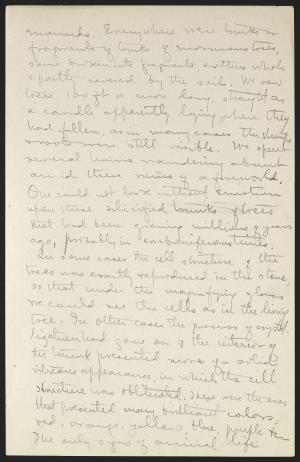 mounds. Everywhere were trunks or
fragments of trunks of enormous trees,
some broken into fragments, others whole
& partly covered by the soil. We saw
trees 100 ft or more long, straight as
a candle apparently lying where they
had fallen, as in many cases the stumps
& roots were still visible. We spent
several hours wandering about
amid these ruins of a foreworld.
One could not look without emotion
upon these silicified trunks of trees
that had been growing millions of years
ago, probably in carboniferous times.
In some cases the cell structure of the
trees was exactly reproduced in the stone,
so that under the magnifying glass
we could see the cells as in the living
tree. In other cases the process of crystal-
lization had gone on & the interior of
the trunk presented more of a solid
vitreous appearance, in which the cell
structure was obliterated, these were the ones
that presented many brilliant colors,
red, orange, yellow blue, purple &c
The only signs of animal life